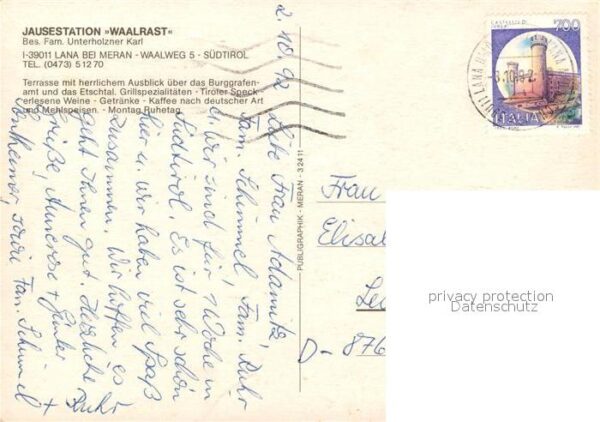 JAUSESTATION »WAALRAST«
Bes. Fam. Unterholzner Karl
I-39011 LANA BEI MERAN - WAALWEG 5 - SÜDTIROL
TEL. (0473) 51270
Terrasse mit herrlichem Ausblick über das Burggrafen-
amt und das Etschtal. Grillspezialitäten - Tiroler Speck -
erlesene Weine - Getränke - Kaffee nach deutscher Art
und Mehlspeisen. - Montag Ruhetag
2.10.92
Liebe Frau Adamitz,
Fam. Schimmel, Fam. Ruhr
u. wir sind für 1 Woche in
Südtirol. Es ist sehr schön
hier u. wir haben viel Spaß
zusammen. Wir hoffen es
geht Ihnen gut. Herzliche
Grüße, Annerose + Günter
sowie Fam. Schimmel
+ Ruhr
PUBLIGRAPHIK - MERAN - 32411
CASTELLO DI
700
ITALIA
LANA
Frau
Elisa
D-876
privacy protection
Datenschutz